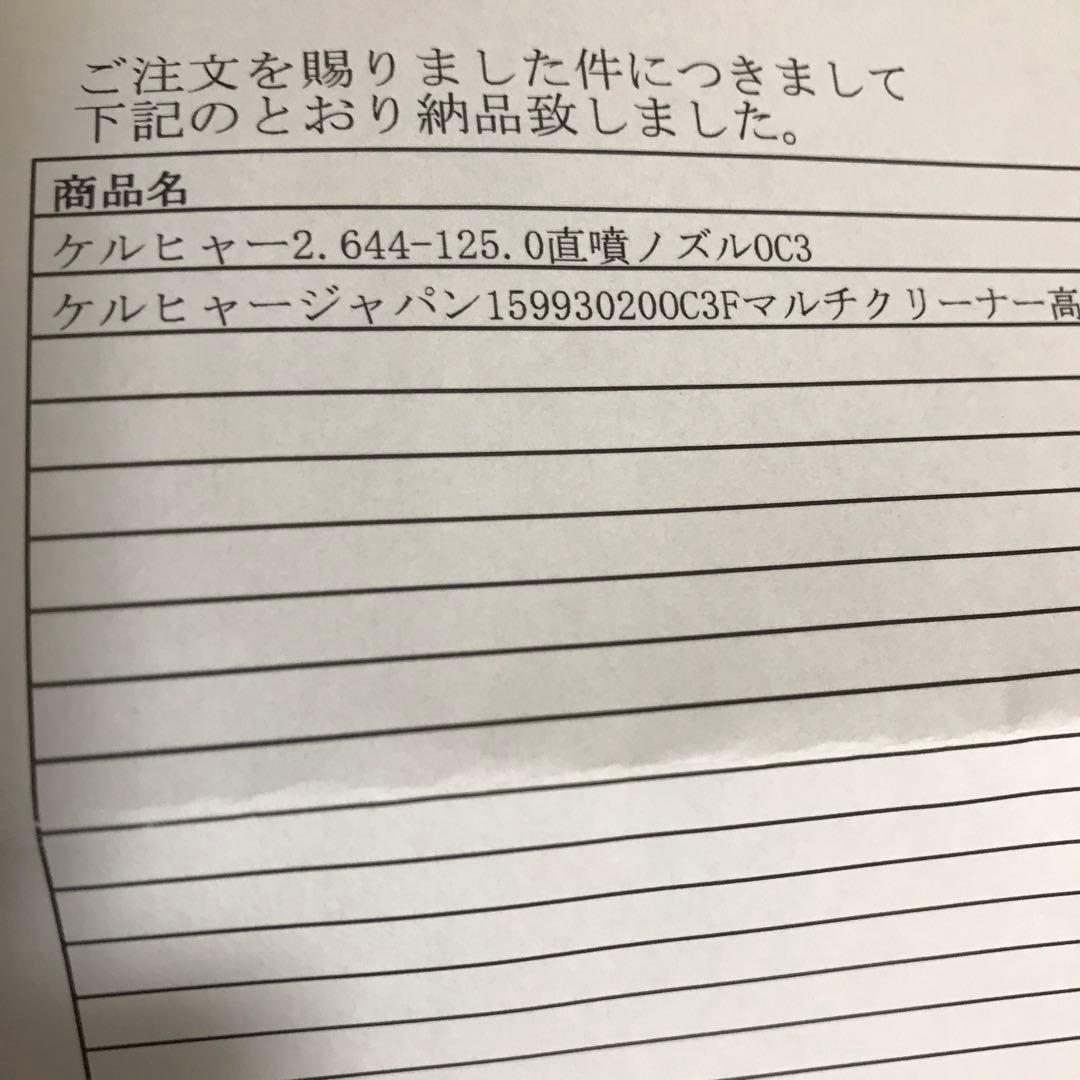 ご注文を賜りました件につきまして
下記のとおり納品致しました。
商品名
ケルヒャー2.644-125.0直噴ノズルOC3
ケルヒャージャパン15993020OC3Fマルチクリーナー高